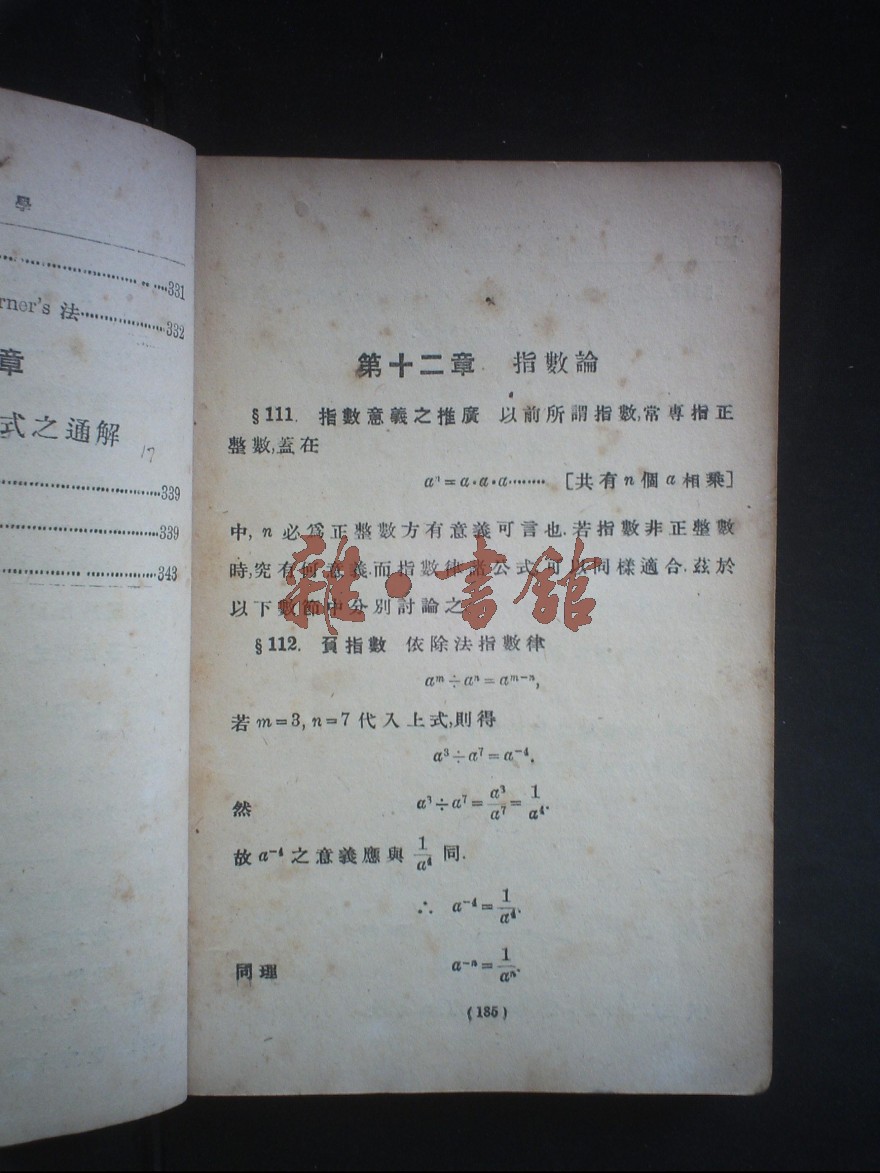 學
331
rner's 法………………332
章
式之通解
17
………………339
………………339
………………343
第十二章 指數論
§111. 指數意義之推廣 以前所謂指數,常專指正
整數,蓋在
aⁿ=a·a·a……… [共有n個a相乘]
中, n 必爲正整數方有意義可言也.若指數非正整數
時,究有何意義.而指數律諸公式,可以同樣適合.茲於
以下數節中分別討論之.
雜·書館
§112. 負指數 依除法指數律
aᵐ÷aⁿ=aᵐ⁻ⁿ,
若 m=3, n=7 代入上式,則得
a³÷a⁷=a⁻⁴.
然 a³÷a⁷=a³/a⁷=1/a⁴.
故 a⁻⁴ 之意義應與 1/a⁴ 同.
∴ a⁻⁴=1/a⁴.
同理 a⁻ⁿ=1/aⁿ.
(185)